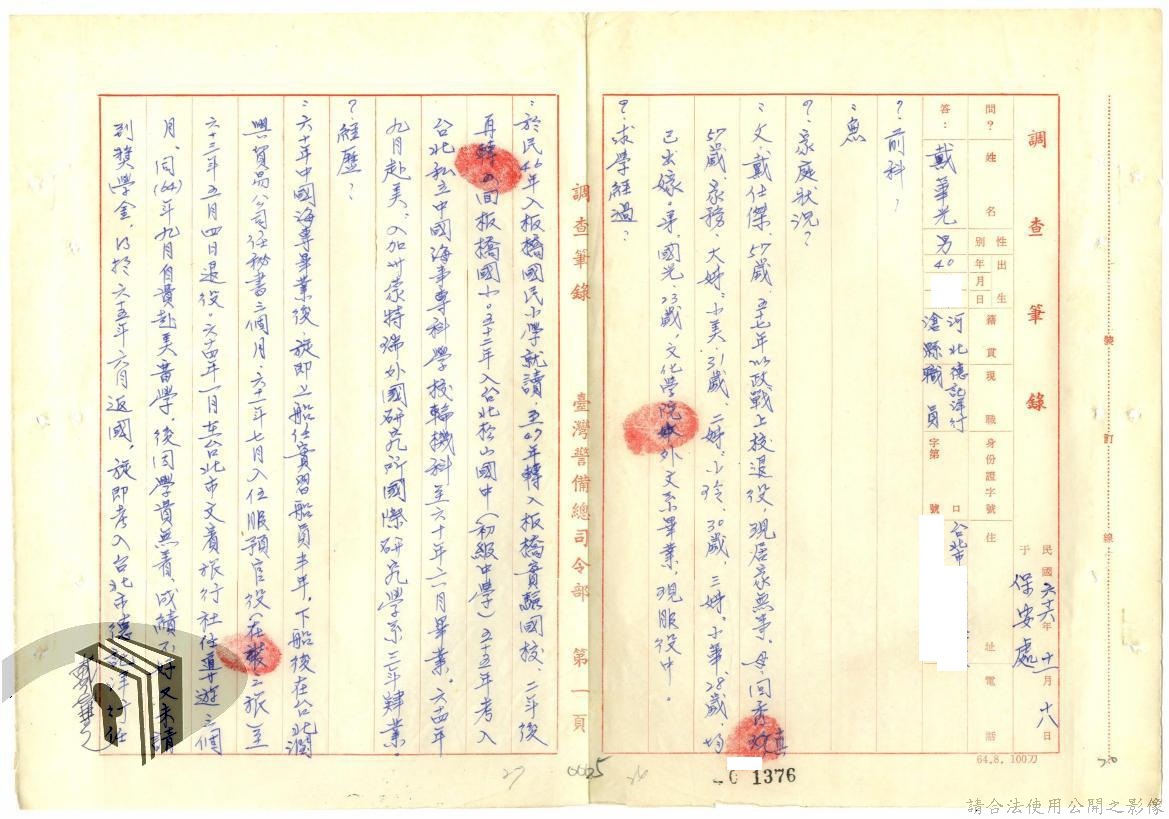 調查筆錄
民國六十六年十一月十八日
于保安處
問?
姓名
性別
出生年月日
籍貫
現職
身份證字號
住址
電話
答:
戴華光
男
40
河北滄縣
德記洋行職員
字第號
口
台北市
?前科?
:無
?家庭狀況?
:父、戴仕傑、57歲、五十七年以政戰上校退役,現居家無事。母、田秀真
57歲家務、大姊、小美、31歲 二姊、小玲、30歲、三姊、小華、28歲、均
已出嫁。弟、國光、23歲,文化學院外文系畢業、現服役中。
?求學經過?
調查筆錄
臺灣警備總司令部
第一頁
:於民46年入板橋國民小學就讀、至49年轉入板橋實驗國校、二年後
再轉回板橋國小。五十二年入台北松山國中(初級中學)五十五年考入
台北私立中國海事專科學校輪機科至六十年六月畢業。六十四年
九月赴美、入加州蒙特瑞外國研究所國際研究學系三年肄業。
?經歷?
:六十年中國海專畢業後、旋即上船任實習船員半年。下船後在台北潤
興貿易公司任秘書三個月、六十一年七月入伍服預官役(在裝二旅)至
六十三年五月四日退役。六十四年一月至台北市文賓旅行社任導遊三個
月、同(64)年九月自費赴美留學、後因學費無着、成績不好又未請
到獎學金,乃於六十五年六月返國。旋即考入台北市德記洋行任
戴華光
裝
訂
線
64.8. 100刀
1376
0025
27
26
請合法使用公開之影像